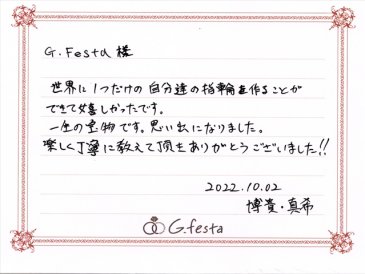 G.Festa 様
世界に1つだけの自分達の指輪を作ることが
できて嬉しかったです。
一生の宝物です。思い出になりました。
楽しく丁寧に教えて頂きありがとうございました!!
2022.10.02
博貴・真希
G.festa